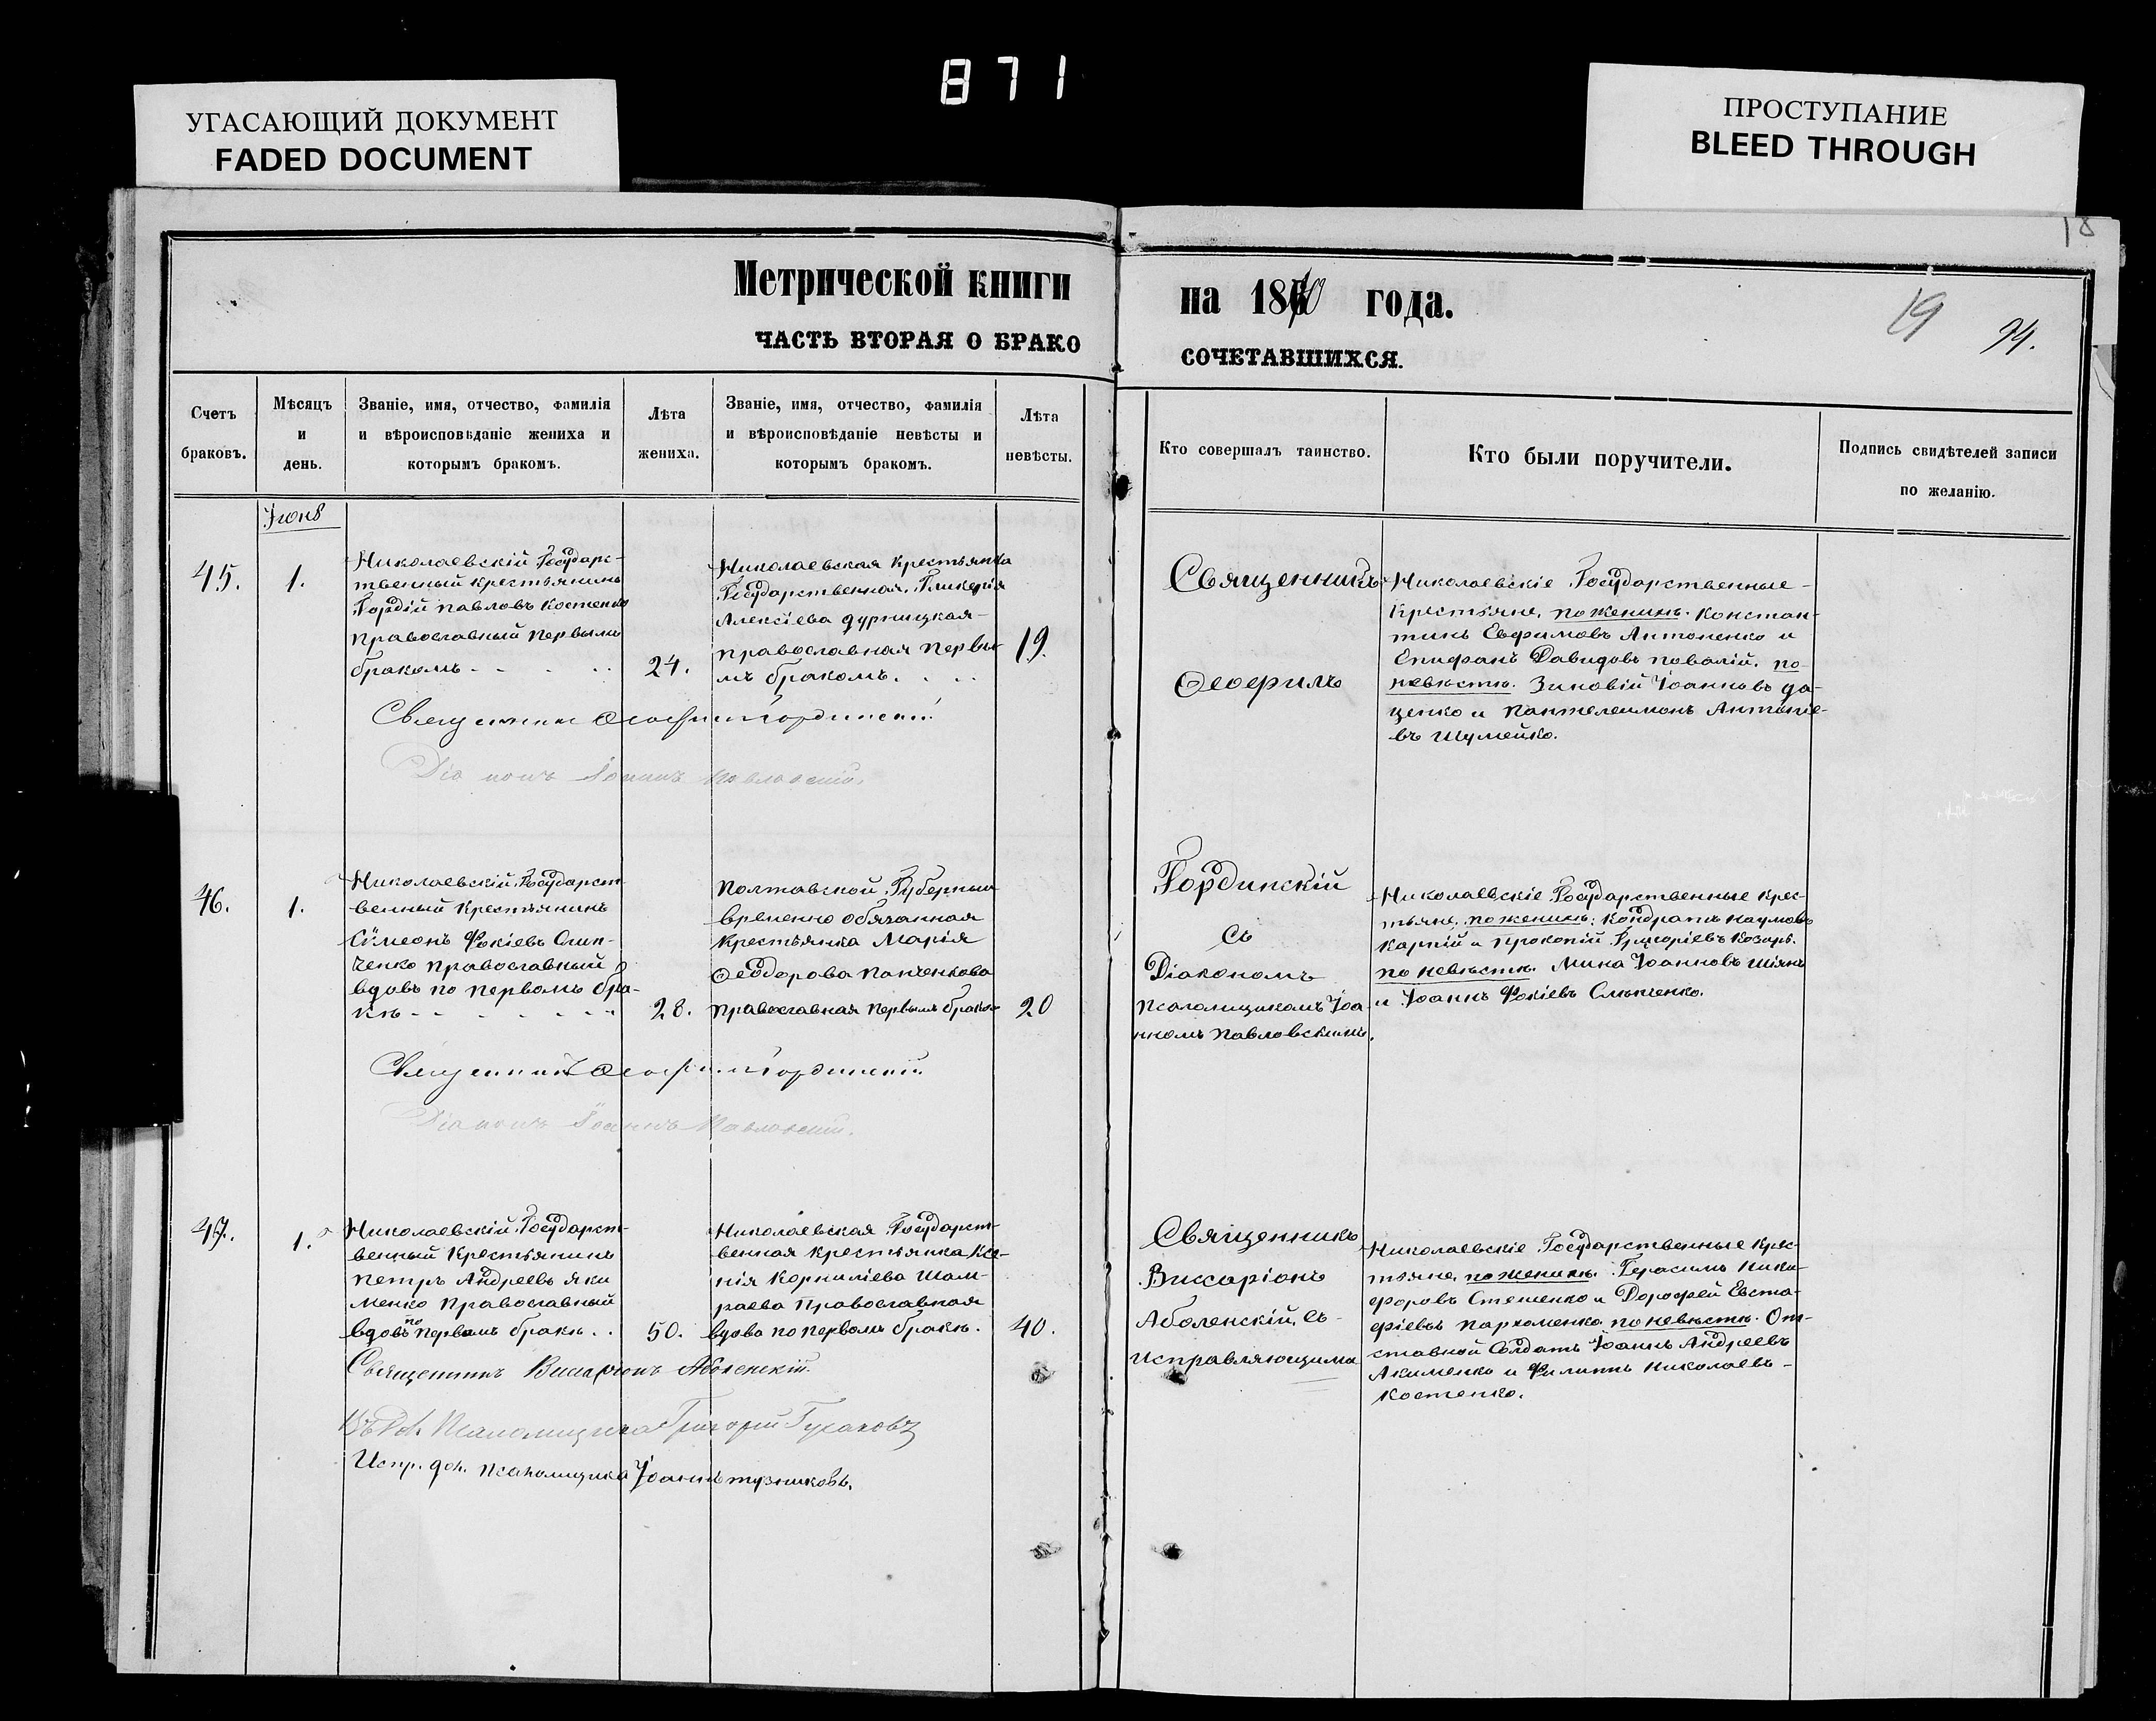 871
УГАСАЮЩИЙ ДОКУМЕНТ
FADED DOCUMENT
ПРОСТУПАНИЕ
BLEED THROUGH
18
Метрической книги
на 1870 года.
19
94.
ЧАСТЬ ВТОРАЯ О БРАКО
СОЧЕТАВШИХСЯ.
Счетъ
браковъ.
Мѣсяцъ
и
день.
Званіе, имя, отчество, фамилія
и вѣроисповѣданіе жениха и
которымъ бракомъ.
Лѣта
жениха.
Званіе, имя, отчество, фамилія
и вѣроисповѣданіе невѣсты и
которымъ бракомъ.
Лѣта
невѣсты.
Кто совершалъ таинство.
Кто были поручители.
Подпись свидѣтелей записи
по желанію.
45.
1.
Николаевскій Государс-
твенный крестьянинъ
Гордій Павловъ Костенко
православный первымъ
бракомъ
24.
Николаевская крестьянка
Государственная Гликерія
Алексіева Дурницкая
православная первы-
мъ бракомъ.
19.
Священникъ
Ѳеофилъ
Николаевскіе Государственные
крестьяне, по женихѣ. Констан-
тинъ Евфимовъ Антоненко и
Епифанъ Давидовъ Повалій. по
невѣстѣ. Зиновій Іоанновъ Да-
ценко и Пантелеимонъ Антоніе-
въ Шумейко.
Священникъ Ѳеофилъ Гординскій
Діаконъ Іоаннъ Павловскій.
46.
1.
Николаевскій Государст-
венный крестьянинъ
Сѵмеонъ Фокіевъ
православный
вдовъ по первомъ бра-
кѣ
28.
Полтавской Губерніи
временно обязанная
крестьянка Марія
Ѳеодорова Панченкова
православная первымъ бракомъ
20
Гординскій
съ
Діакономъ
Псаломщикомъ Іоа-
нномъ Павловскимъ.
Николаевскіе Государственные крес-
тьяне, по женихѣ: Кондратъ Наумовъ
Карпій и Прокопій Григоріевъ Козарь.
по невѣстѣ. Мина Іоанновъ Шіянъ
и Іоаннъ Фокіевъ
Священникъ Ѳеофилъ Гординскій
Діаконъ Іоаннъ Павловскій.
47.
1.
Николаевскій Государст-
венный крестьянинъ
Петръ Андреевъ Яки
менко православный
вдовъ по первомъ бракѣ.
50.
Николаевская Государст-
венная крестьянка Ксе-
нія Корниліева Шам-
раева Православная
вдова по первомъ бракѣ.
40.
Священникъ
Виссаріонъ
Аболенскій, съ
исправляющими
Николаевскіе Государственные крес-
тьяне, по женихѣ. Герасимъ Ники-
форовъ Стешенко и Дорофей Евста-
фіевъ Пархоменко по невѣстѣ. От-
ставной Солдатъ Іоаннъ Андреевъ
Акименко и Филиппъ Николаевъ
Костенко.
Священникъ Виссаріонъ Аболенскій.
Псаломщика Григорій
Испр. дол. Псаломщика Іоаннъ